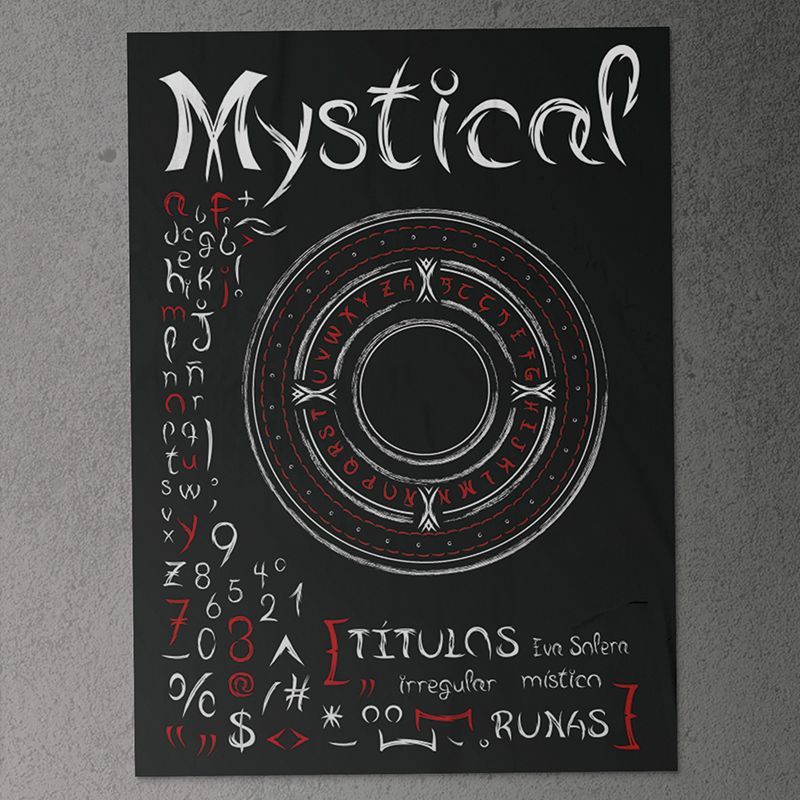 Mystical
a b f +
d c g ¿
e > 
h i k j !
m j
l
n ñ
o r
p q |
t u
s w ;
v
x y 9
z 8 5 4 º
7 6 2 1
_ 0 3 ^
% @ / #
“ ” $ < >
A B C Ç D E F G H I J K L M N Ñ O P Q R S T U V W X Y Z
[ TÍTULOS Eva Solera
” irregular místico
* RUNAS ]